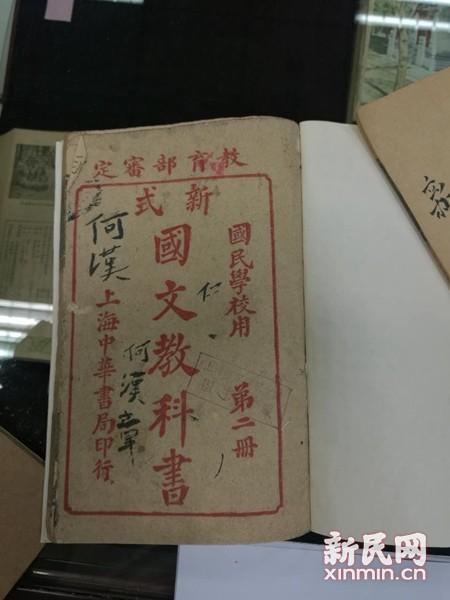 教育部審定
新式
國民學校用 第二冊
仁
國文教科書
何漢
何漢
上海中華書局印行
新民网
xinmin.cn